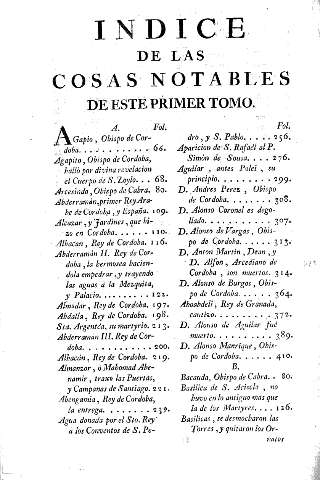 INDICE
DE LAS
COSAS NOTABLES
DE ESTE PRIMER TOMO.
A. Fol.
AGapio, Obispo de Cor-
doba. . . . . . . . . . . . 66.
Agapito, Obispo de Cordoba,
halló por divina revelacion
el Cuerpo de S. Zoylo. . . 68.
Arcesindo, Obispo de Cabra. 80.
Abderraman, primer Rey Ara-
be de Cordoba, y España. 109.
Alcazar, y Jardines, que hi-
zo en Cordoba. . . . . 110.
Alhacan, Rey de Cordoba. 116.
Abderramàn II. Rey de Cor-
doba, la hermosea hacien-
dola empedrar, y trayendo
las aguas à la Mezquita,
y Palacio. . . . . . . . 121.
Almudar, Rey de Cordoba. 197.
Abdalla, Rey de Cordoba. 198.
Sta. Argentéa, su martyrio. 213.
Abderraman III. Rey de Cor-
doba. . . . . . . . . . . 200.
Alhacàn, Rey de Cordoba. 219.
Almanzor, ò Mahomad Abe-
namir, traxo las Puertas,
y Campanas de Santiago. 221.
Abengamia, Rey de Cordoba,
la entrega. . . . . . . . 239.
Agua donada por el Sto. Rey
à los Conventos de S. Pe-
Fol.
dro, y S. Pablo. . . . . 256.
Aparicion de S. Rafaèl al P.
Simòn de Sousa. . . . 276.
Aguilar, antes Polei, su
principio. . . . . . . . . 299.
D. Andres Perez, Obispo
de Cordoba. . . . . . . 308.
D. Alonso Coronel es dego-
llado. . . . . . . . . . 307.
D. Alonso de Vargas, Obis-
po de Cordoba. . . . . 313.
D. Anton Martin, Dean, y
D. Alfon, Arcediano de
Cordoba, son muertos. 314.
D. Alonso de Burgos, Obis-
po de Cordoba. . . . . 364.
Aboabdelì, Rey de Granada,
cautivo. . . . . . . . . 372.
D. Alonso de Aguilar fuè
muerto. . . . . . . . . 389.
D. Alonso Manrique, Obis-
po de Cordoba. . . . . 410.
B.
Bacauda, Obispo de Cabra. . 80.
Basilica de S. Acisclo, no
huvo en lo antiguo mas que
la de los Martyres. . . . 126.
Basilicas, se desmocharon las
Torres, y quitaron los Or-
natos